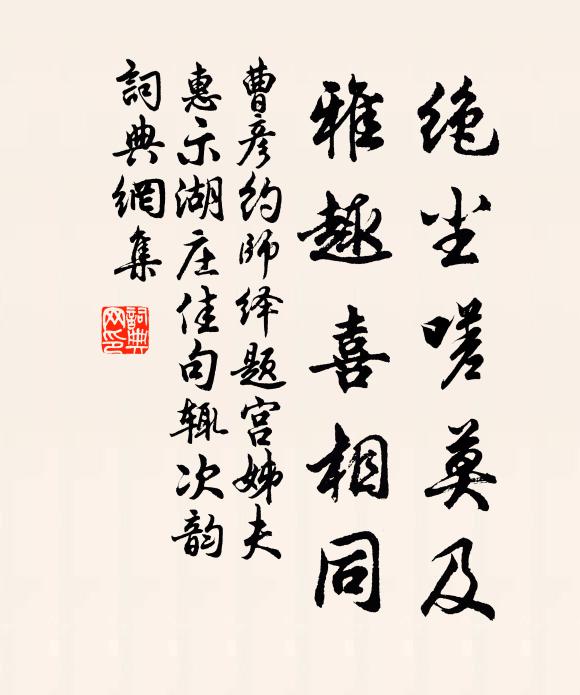 绝尘嗟莫及
雅趣喜相同
曹彦约师绎题宫姊夫
惠示湖庄佳句辄次韵
詞典網集
詞典网印